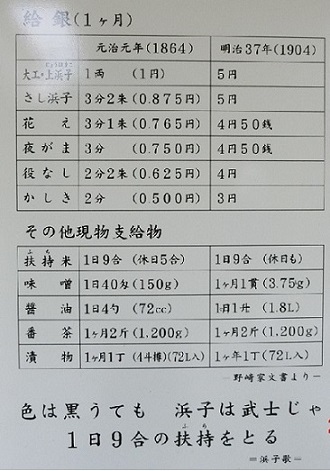 給銀(1ヶ月)
元治元年(1864) 明治37年(1904)
大工・上浜子 1両 (1円) 5円
さし浜子 3分2朱(0.875円) 5円
花え 3分1朱(0.765円) 4円50銭
夜がま 3分 (0.750円) 4円50銭
役なし 2分2朱(0.625円) 4円
かしき 2分 (0.500円) 3円
その他現物支給物
ふち
扶持米 1日9合 (休日5合) 1日9合 (休日も)
味噌 1日40匁(150g) 1ヶ月1貫(3.75g)
醤油 1日4勺 (72cc) 1日1升 (1.8L)
番茶 1ヶ月2斤(1.200g) 1ヶ月2斤(1.200g)
漬物 1ヶ月1丁 (4斗樽)(72L入) 1ヶ年1丁(72L入)
―野崎家文書より―
色は黒うても 浜子は武士じゃ
ふち
1日9合の扶持をとる
=浜子歌=